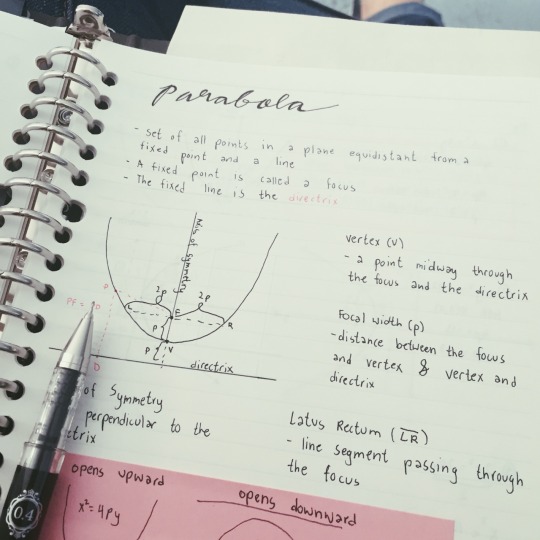 parabola
- set of all points in a plane equidistant from a
fixed point and a line
- A fixed point is called a focus
- The fixed line is the directrix
Axis of symmetry
2p
2p
P
L
F
R
PF =
D
P
V
P
directrix
D
vertex (V)
- a point midway through
the focus and the directrix
Focal width (p)
- distance between the focus
and vertex & vertex and
directrix
of Symmetry
perpendicular to the
trix
Latus Rectum (LR)
- line segment passing through
the focus
opens upward
x²=4py
opens downward
0.4